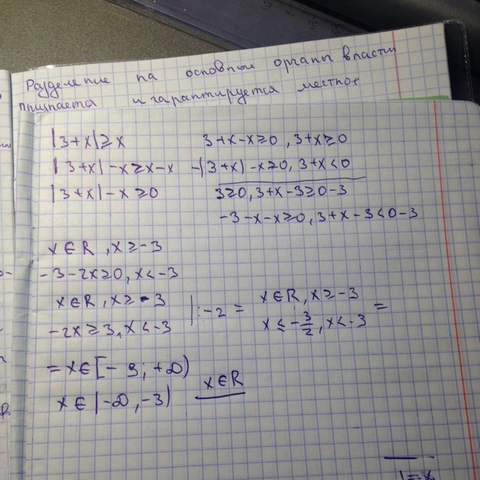 Разделение на основные органы власти
и гарантируется местное
|3+x|≥x
3+x-x≥0, 3+x≥0
|3+x|-x≥x-x
-(3+x)-x≥0, 3+x<0
|3+x|-x≥0
3≥0, 3+x-3≥0-3
-3-x-x≥0, 3+x-3<0-3
x∈R, x≥-3
-3-2x≥0, x<-3
x∈R, x≥-3
|:-2 =
x∈R, x≥-3
=
-2x≥3, x<-3
x≤-3/2, x<-3
=x∈[-3; +∞)
x∈R
x∈|-∞,-3)